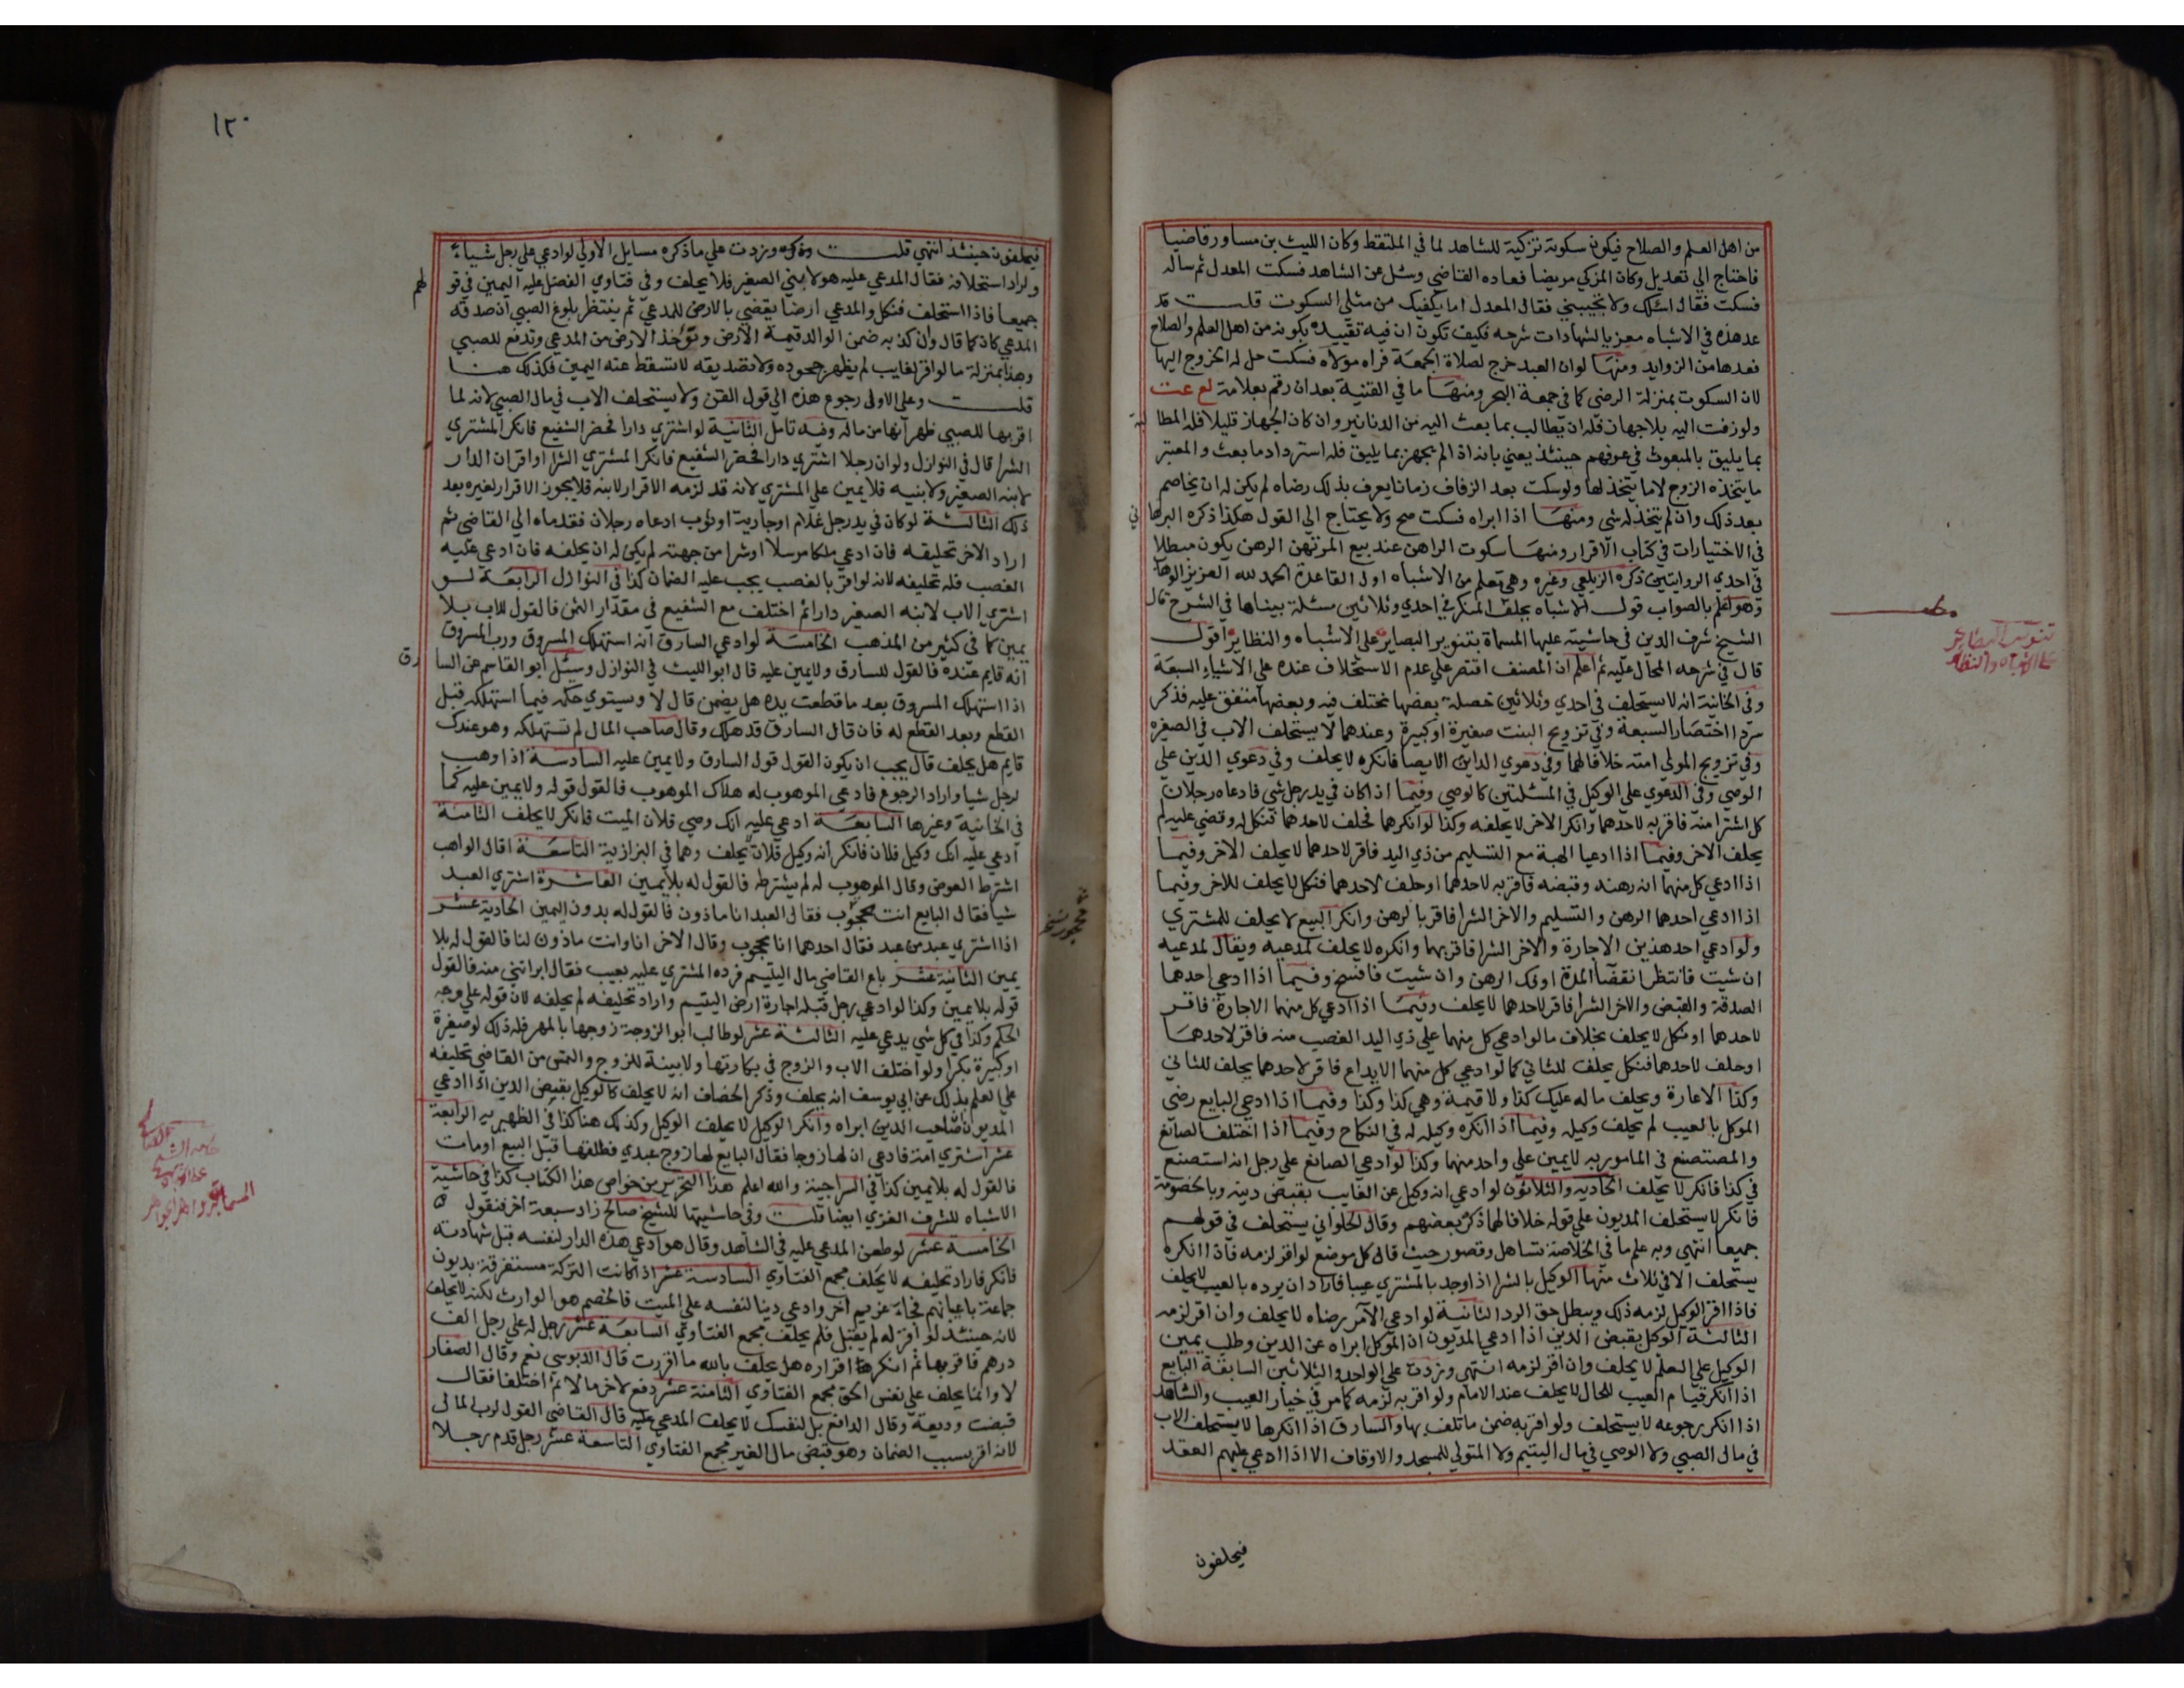 من اهل العلم والصلاح فيكون سكوته تزكية للشاهد لما في الملتقط وكان الليث بن مساور قاضيا
فاحتاج الي تعديل وكان المزكي مريضا فعاده القاضي وسئل عن الشاهد فسكت المعدل ثم ساله
فسكت فقال اسئلك ولا تجيبني فقال المعدل اما يكفيك من مثلي السكوت قلت قد
عد هذه في الاشباه معزيا لشهادات شرحه فكيف تكون ان فيه تقييده بكونه من اهل العلم والصلاح
فعدها من الزوايد ومنها لو ان العبد خرج لصلاة الجمعة فراه مولاه فسكت حل له الخروج اليها
لان السكوت بمنزلة الرضي كما في جمعة البحر ومنها ما في القنية بعد ان رقم بعلامة لع عت
ولو زفت اليه بلا جهاز فله ان يطالب بما بعث اليه من الدنانير وان كان الجهاز قليلا فله المطالبة
بما يليق بالمبعوث في عرفهم حينئذ يعني بانه اذا لم يجهز بما يليق فله استرداد ما بعث والمعتبر
ما يتخذه الزوج لا ما يتخذ لها ولو سكت بعد الزفاف زمانا يعرف بذلك رضاه لم يكن له ان يخاصم
بعد ذلك وان لم يتخذ له شي ومنها اذا ابراه فسكت صح ولا يحتاج الي القول هكذا ذكره البرهاني
في الاختيارات في كتاب الاقرار ومنها سكوت الراهن عند بيع المرتهن الرهن يكون مبطلا
في احدي الروايتين ذكره الزيلعي وغيره وهي تعلم من الاشباه اول القاعدة الحمد لله العزيز الوهاب
وهو اعلم بالصواب قول الاشباه يحلف المنكر في احدي وثلاثين مسئلة بيناها في الشرح قال
الشيخ شرف الدين في حاشيته عليها المسماة بتنوير البصاير علي الاشباه والنظاير اقول
قال في شرحه المحال عليه ثم اعلم ان المصنف اقتصر علي عدم الاستحلاف عنده علي الاشياء السبعة
وفي الخانية انه لا يستحلف في احدي وثلاثين خصلة بعضها مختلف فيه وبعضها متفق عليه فذكر
سرد اختصار السبعة وفي تزويج البنت صغيرة او كبيرة وعندهما لا يستحلف الاب في الصغيره
وفي تزويج المولي امته خلافا لهما وفي دعوي الداين الايصا فانكره لا يحلف وفي دعوي الدين علي
الوصي وفي الدعوي علي الوكيل في المسئلتين كالوصي وفيما اذا كان في يد رجل شي فادعاه رجلان
كل اشترا منه فاقر به لاحدهما وانكر الاخر لا يحلفه وكذا لو انكرهما فحلف لاحدهما فنكل له وقضي عليه لم
يحلف الاخر وفيما اذا ادعيا الهبة مع التسليم من ذي اليد فاقر لاحدهما لا يحلف الاخر وفيما
اذا ادعي كل منهما انه رهنه وقبضه فاقر به لاحدهما او حلف لاحدهما فنكل لا يحلف للاخر وفيما
اذا ادعي احدهما الرهن والتسليم والاخر الشرا فاقر بالرهن وانكر البيع لا يحلف للمشتري
ولو ادعي احد هذين الاجارة والاخر الشرا فاقر بهما وانكره لا يحلف لمدعيه ويقال لمدعيه
ان شيت فانتظر انقضا المدة او فك الرهن وان شيت فافسخ وفيما اذا ادعي احدهما
الصدقة والقبض والاخر الشرا فاقر لاحدهما لا يحلف وفيما اذا ادعي كل منهما الاجارة فاقر
لاحدهما او نكل لا يحلف بخلاف ما لو ادعي كل منهما علي ذي اليد الغصب منه فاقر لاحدهما
او حلف لاحدهما فنكل يحلف للثاني كما لو ادعي كل منهما الايداع فاقر لاحدهما يحلف للثاني
وكذا الاعارة ويحلف ما له عليك كذا ولا قيمة وهي كذا وكذا وفيما اذا ادعي البايع رضي
الموكل بالعيب لم يحلف وكيله وفيما اذا انكره وكيله له في النكاح وفيما اذا اختلف الصانع
والمصتصنع في المامور به لا يمين علي واحد منهما وكذا لو ادعي الصانع علي رجل انه استصنع
في كذا فانكر لا يحلف الحادية والثلاثون لو ادعي انه وكيل عن الغايب بقبض دينه وبالخصومة
فانكر لا يستحلف المديون علي قوله خلافا لهما ذكر بعضهم وقال الحلواني يستحلف في قولهم
جميعا انتهي وبه علم ما في الخلاصة تساهل وقصور حيث قال كل موضع لو اقر لزمه فاذا انكره
يستحلف الا في ثلاث منها الوكيل بالشرا اذا وجد بالمشتري عيبا فاراد ان يرده بالعيب لا يحلف
فاذا اقر الوكيل لزمه ذلك ويبطل حق الرد الثانية لو ادعي الآمر رضاه لا يحلف وان اقر لزمه
الثالثة الوكيل بقبض الدين اذا ادعي المديون ان الموكل ابراه عن الدين وطلب يمين
الوكيل علي العلم لا يحلف وان اقر لزمه انتهي وزدت علي الواحد والثلاثين السابقة البايع
اذا انكر قيام العيب للحال لا يحلف عند الامام ولو اقر به لزمه كما مر في خيار العيب والشاهد
اذا انكر رجوعه لا يستحلف ولو اقر به ضمن ما تلف بها والسارق اذا انكرها لا يستحلف الاب
في مال الصبي ولا الوصي في مال اليتيم ولا المتولي للمسجد والاوقاف الا اذا ادعي عليهم العقد
فيحلفون
تنوير البصاير
علي الاشباه والنظاير
١٢٠
فيحلفون حينئذ انتهي قلت وزدت علي ما ذكره مسايل الاولي لو ادعي علي رجل شياء
واراد استحلافه فقال المدعي عليه هو لابني الصغير فلا يحلف وفي فتاوي الفضل عليه اليمين في قولهم
جميعا فاذا استحلف فنكل والمدعي ارضا يقضي بالارض للمدعي ثم ينتظر بلوغ الصبي ان صدقه
المدعي كان كما قال وان كذبه ضمن الوالد قيمة الارض وتؤخذ الارض من المدعي وتدفع للصبي
وهذا بمنزلة ما لو اقر لغايب لم يظهر جحوده ولا تصديقه لا تسقط عنه اليمين فكذلك هنا
قلت وعلي الاولي رجوع هذه الي قول القن ولا يستحلف الاب في مال الصبي لانه لما
اقر بها للصبي ظهر انها من ماله وفيه تامل الثانية لو اشتري دارا فحضر الشفيع فانكر المشتري
الشرا قال في النوازل ولو ان رجلا اشتري دارا فحضر الشفيع فانكر المشتري الشرا او اقر ان الدار
لابنه الصغير ولا بنيه فلا يمين علي المشتري لانه قد لزمه الاقرار لابنه فلا يجوز الاقرار لغيره بعد
ذلك الثالثة لو كان في يد رجل غلام او جارية او ثوب ادعاه رجلان فقدماه الي القاضي ثم
اراد الاخر تحليفه فان ادعي ملكا مرسلا او شرا من جهته لم يكن له ان يحلفه فان ادعي عليه
الغصب فله تحليفه لانه لو اقر بالغصب يجب عليه الضمان كذا في النوازل الرابعة لو
اشتري الاب لابنه الصغير دارا ثم اختلف مع الشفيع في مقدار الثمن فالقول للاب بلا
يمين كما في كثير من المذهب الخامسة لو ادعي السارق انه استهلك المسروق ورب المسروق
انه قايم عنده فالقول للسارق ولا يمين عليه قال ابو الليث في النوازل وسئل ابو القاسم عن السارق
اذا استهلك المسروق بعد ما قطعت يده هل يضمن قال لا ويستوي حكمه فيما استهلكه قبل
القطع وبعد القطع له فان قال السارق قد هلك وقال صاحب المال لم تستهلكه وهو عندك
قايم هل يحلف قال يجب ان يكون القول قول السارق ولا يمين عليه السادسة اذا وهب
لرجل شيا واراد الرجوع فادعي الموهوب له هلاك الموهوب فالقول قوله ولا يمين عليه كما
في الخانية وغيرها السابعة ادعي عليه انك وصي فلان الميت فانكر لا يحلف الثامنة
ادعي عليه انك وكيل فلان فانكر انه وكيل فلان يحلف وهما في البزازية التاسعة اقال الواهب
اشترط العوض وقال الموهوب له لم يشترطه فالقول له بلا يمين العاشرة اشتري العبد
شيا فقال البايع انت محجوب فقال العبد انا ماذون فالقول له بدون اليمين الحادية عشر
محجور نسخه
اذا اشتري عبد من عبد فقال احدهما انا محجوب وقال الاخر انا وانت ماذون لنا فالقول له بلا
يمين الثانية عشر باع القاضي مال اليتيم فرده المشتري عليه بعيب فقال ابراتني منه فالقول
قوله بلا يمين وكذا لو ادعي رجل قبله اجارة ارض اليتيم واراد تحليفه لم يحلفه لان قوله علي وجه
الحكم وكذا في كل شي يدعي عليه الثالثة عشر لو طالب ابو الزوجة زوجها بالمهر فله ذلك لو صغيرة
او كبيرة بكرا ولو اختلف الاب والزوج في بكارتها ولا بينة للزوج والتمس من القاضي تحليفه
علي العلم بذلك عن ابي يوسف انه يحلف وذكر الخصاف انه لا يحلف كالوكيل بقبض الدين اذا ادعي
المديون ان صاحب الدين ابراه وانكر الوكيل لا يحلف الوكيل وكذلك هنا كذا في الظهيرية الرابعة
عشر اشتري امة فادعي ان لها زوجا فقال البايع لها زوج عبدي فطلقها قبل البيع او مات
فالقول له بلا يمين كذا في السراجية والله اعلم هذا التحرير من خواص هذا الكتاب كذا في حاشية
الاشباه للشرف الغزي ايضا قلت وفي حاشيتها للشيخ صالح زاد سبعة اخر فنقول
الخامسة عشر لو طعن المدعي عليه في الشاهد وقال هو ادعي هذه الدار لنفسه قبل شهادته
فانكر فاراد تحليفه لا يحلف مجمع الفتاوي السادسة عشر اذا كانت التركة مستغرقة بديون
جماعة باعيانهم فجاء غريم آخر وادعي دينا لنفسه علي الميت فالخصم هو الوارث لكنه لا يحلف
لانه حينئذ لو اقر له لم يقبل فلم يحلف مجمع الفتاوي السابعة عشر رجل له علي رجل الف
درهم فاقر بها ثم انكر هذا اقراره هل يحلف بالله ما اقررت قال الدبوسي نعم وقال الصفار
لا وانما يحلف علي نفس الحق مجمع الفتاوي الثامنة عشر دفع لاخر مالا ثم اختلفا فقال
قبضت وديعة وقال الدافع بل لنفسك لا يحلف المدعي عليه قال القاضي القول لرب المال
لانه اقر بسبب الضمان وهو قبض مال الغير مجمع الفتاوي التاسعة عشر رجل قدم رجلا